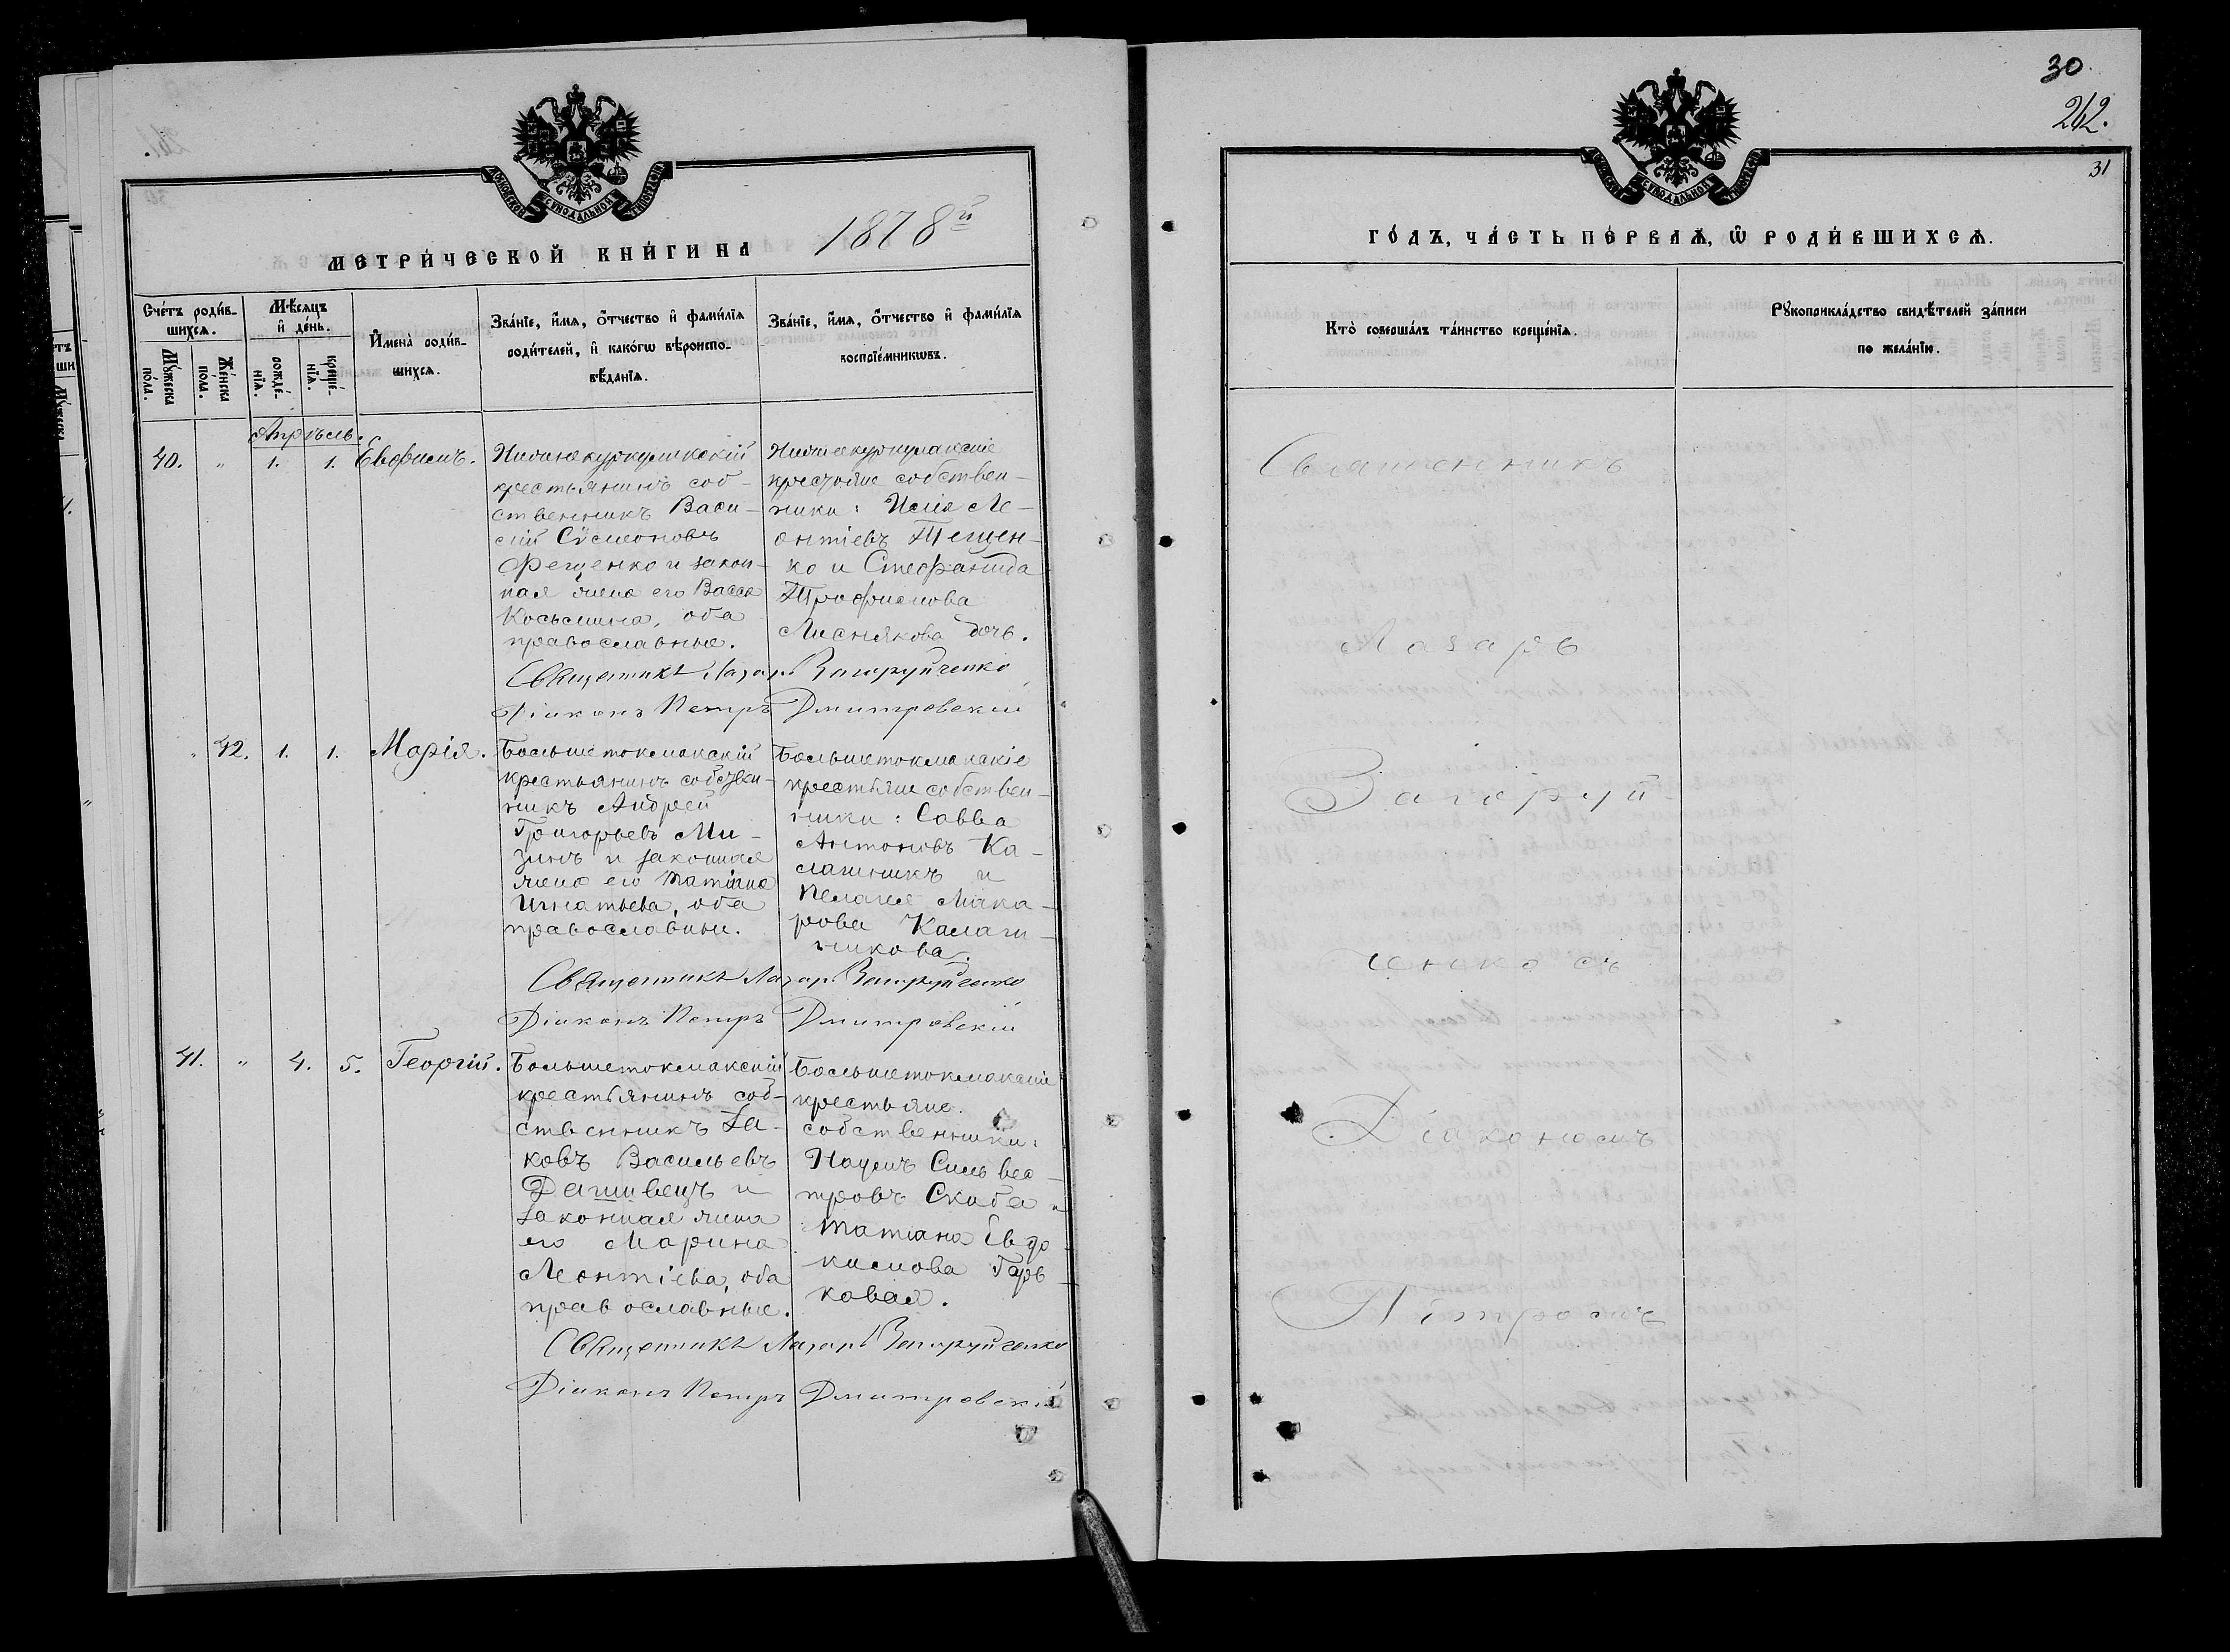 МЕТРИ́ЧЕСКОЙ КНИ́ГИ НА 1878й
Сче́тъ роди́в-
шихся.
Мѣ́сяцъ
и҆ де́нь.
Мꙋ́жеска
по́ла.
Же́нска
по́ла.
рожде́-
нїѧ.
креще́-
нїѧ.
И҆мена̀ роди́в-
шихсѧ.
Зва́нїе, и҆́мѧ, ѻ҆́тчество и҆ фами́лїѧ
роди́телей, и҆ како́гѡ вѣроиспо-
вѣ́данїѧ.
Зва́нїе, и҆́мѧ, ѻ҆́тчество и҆ фами́лїѧ
воспрїе́мникѡвъ.
Апрѣль.
40. " 1. 1. Евфимъ.
крестьянинъ соб-
ственникъ Васи-
лій Сѵмеоновъ
Фещенко и закон-
ная жена его Васса
Косьмина, оба
православные.
крестьяне собствен-
ники: Илія Ле-
онтіевъ Тещен-
ко и Стефанида
Трофимова
Лиснякова дочь.
Священникъ Лазарь Загоруйченко
Діаконъ Петръ Дмитровскій
" 42. 1. 1. Марія.
Большетокмакскій
крестьянинъ собствен-
никъ Андрей
Григорьевъ Ми-
зинъ и законная
жена его Татіана
Игнатьева, оба
православны.
Большетокмакскіе
крестьяне собствен-
ники: Савва
Антоновъ Ка-
лашникъ и
Пелагія Мака-
рова Калаш-
никова.
Священникъ Лазарь Загоруйченко
Діаконъ Петръ Дмитровскій
41. " 4. 5. Георгій.
Большетокмакскій
крестьянинъ соб-
ственникъ Іа-
ковъ Васильевъ
Дашивецъ и
законная жена
его Марина
Леонтіева, оба
православные.
Большетокмакскіе
крестьяне
собственники:
Наумъ Сильвес-
тровъ Скиба и
Татіана Евдо-
кимова Гарь-
ковая.
Священникъ Лазарь Загоруйченко
Діаконъ Петръ Дмитровскій
30.
262.
31
ГО́ДЪ, ЧА́СТЬ ПЕ́РВАѦ, Ѽ РОДИ́ВШИХСѦ.
Кто̀ соверша́лъ та́инство креще́нїѧ.
Рꙋкоприкла́дство свидѣ́телей за́писи
по жела́нїю.
Священникъ
Лазарь
Загоруй-
ченко съ
Діакономъ
Петромъ